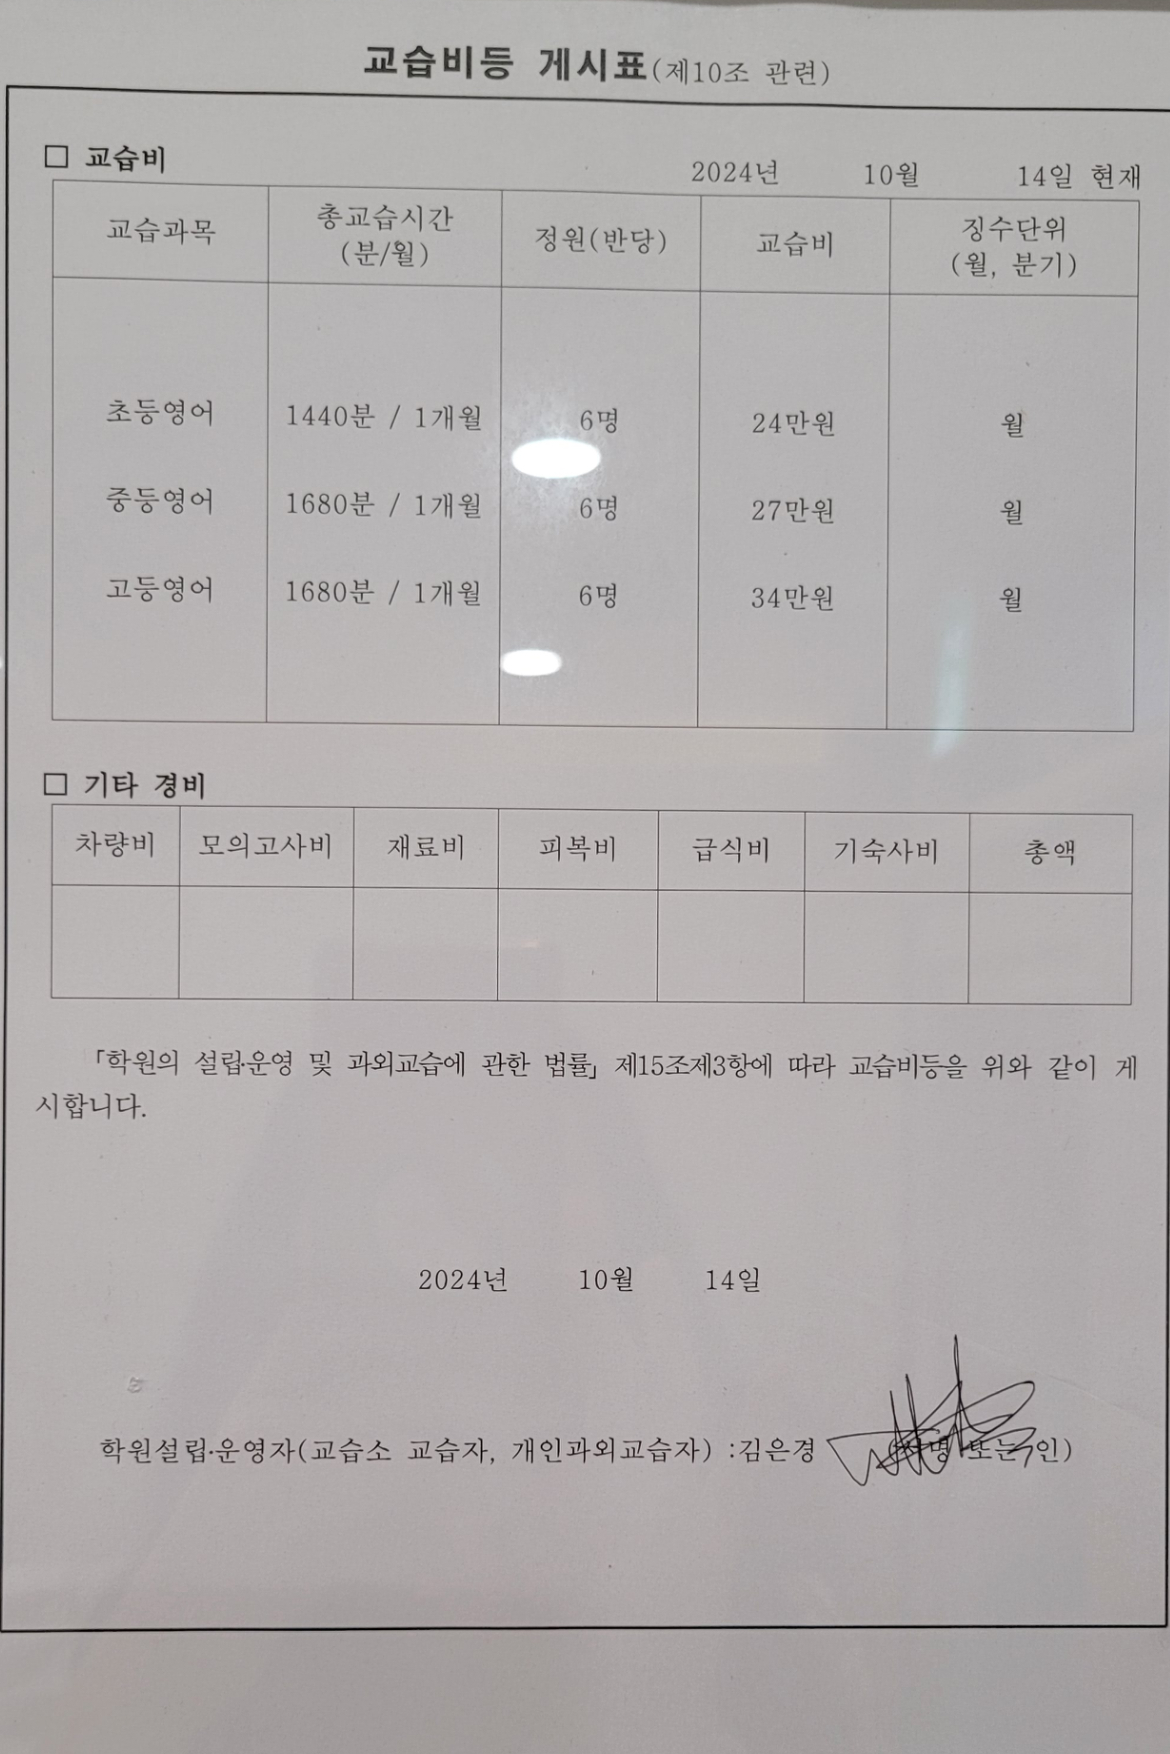 교습비등 게시표(제10조 관련)
□ 교습비
2024년 10월 14일 현재
교습과목 총교습시간 (분/월) 정원(반당) 교습비 징수단위 (월, 분기)
초등영어 1440분 / 1개월 6명 24만원 월
중등영어 1680분 / 1개월 6명 27만원 월
고등영어 1680분 / 1개월 6명 34만원 월
□ 기타 경비
차량비 모의고사비 재료비 피복비 급식비 기숙사비 총액
「학원의 설립·운영 및 과외교습에 관한 법률」 제15조제3항에 따라 교습비등을 위와 같이 게
시합니다.
2024년 10월 14일
학원설립·운영자(교습소 교습자, 개인과외교습자) :김은경 (서명 또는 인)